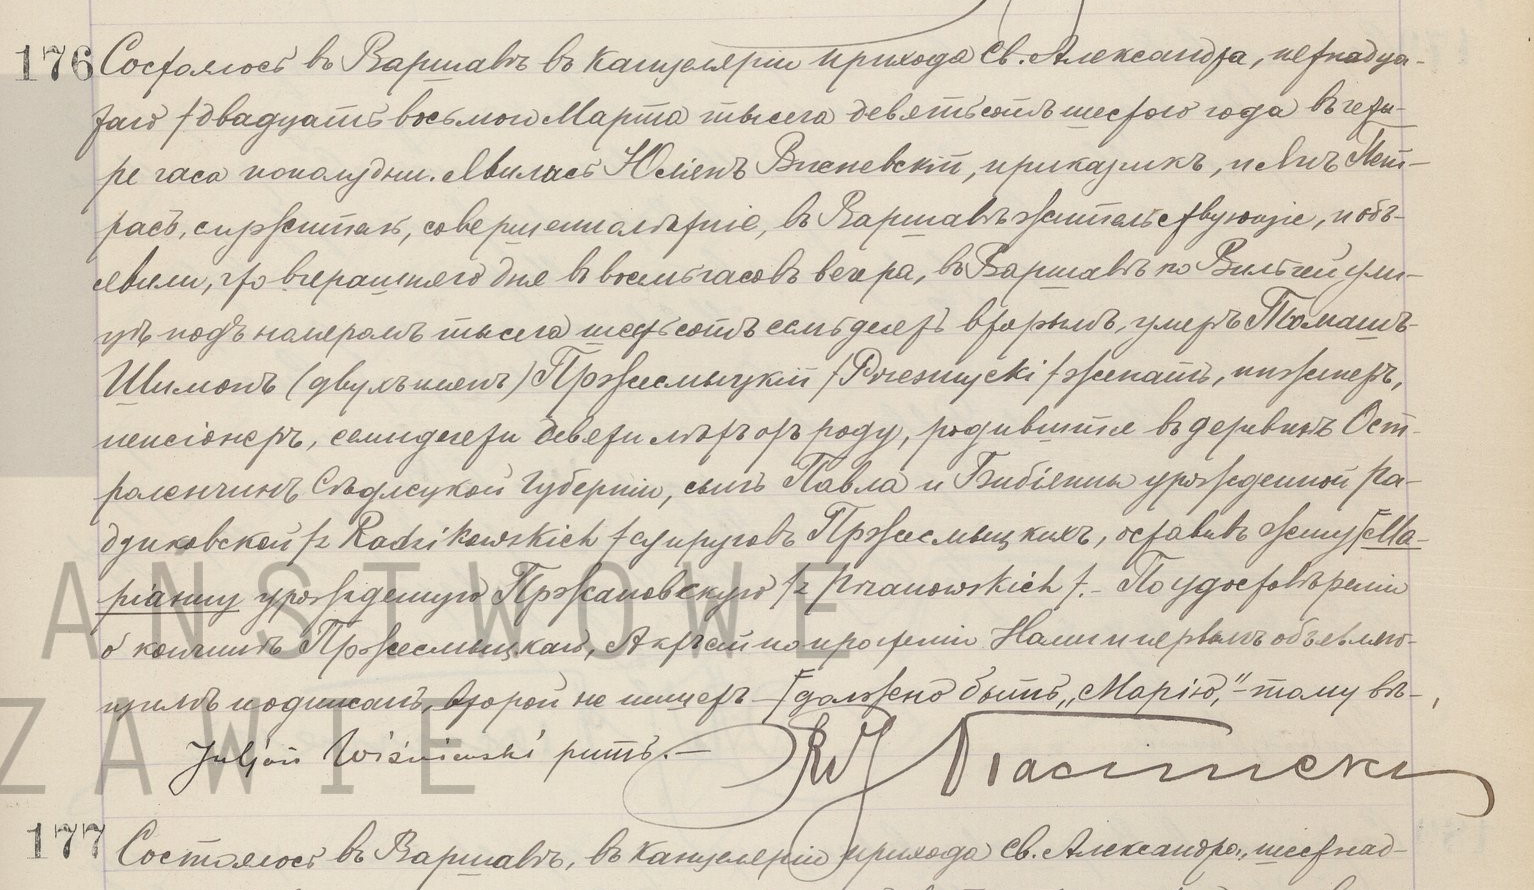 176 Состоялось въ Варшавѣ въ канцеляріи прихода Св. Александра, пятнадца-
таго /двадцать восьмого Марта тысяча девятьсотъ шестого года въ четы-
ре часа пополудни. Явились Юліянъ Висневскій, приказчикъ, и Янъ
расъ, служитель, совершеннолѣтніе, въ Варшавѣ жительствующіе, и объ-
явили, что вчерашняго дня въ восемь часовъ вечера, въ Варшавѣ по Вильчей ули-
цѣ подъ номеромъ тысяча шестьсотъ семьдесятъ вторымъ, умеръ Томашъ-
Шимонъ (двухъ именъ) Пржесмыцкій /Przesmycki/ женатъ, инженеръ,
пенсіонеръ, семидесяти девяти лѣтъ отъ роду, родившійся въ деревнѣ Ост-
роленчинъ Сѣдлецкой Губерніи, сынъ Павла и Бибіянны урожденной Ра-
дзиковской /z Radzikowskich/ супруговъ Пржесмыцкихъ, оставивъ жену [Ма-
ріанну урожденную Пржановскую /z Przanowskich/.- По удостовѣреніи
о кончинѣ Пржесмыцкаго, Актъ сей по прочтеніи Нами и первымъ объявляю-
щимъ подписанъ, второй не пишетъ - [должно быть „Марію,"- тому вѣ-
Juljan Wiśniewski рить.-
177 Состоялось въ Варшавѣ, въ канцеляріи прихода Св. Александра, шестнад-
ANSTWOWE
ZAWIE